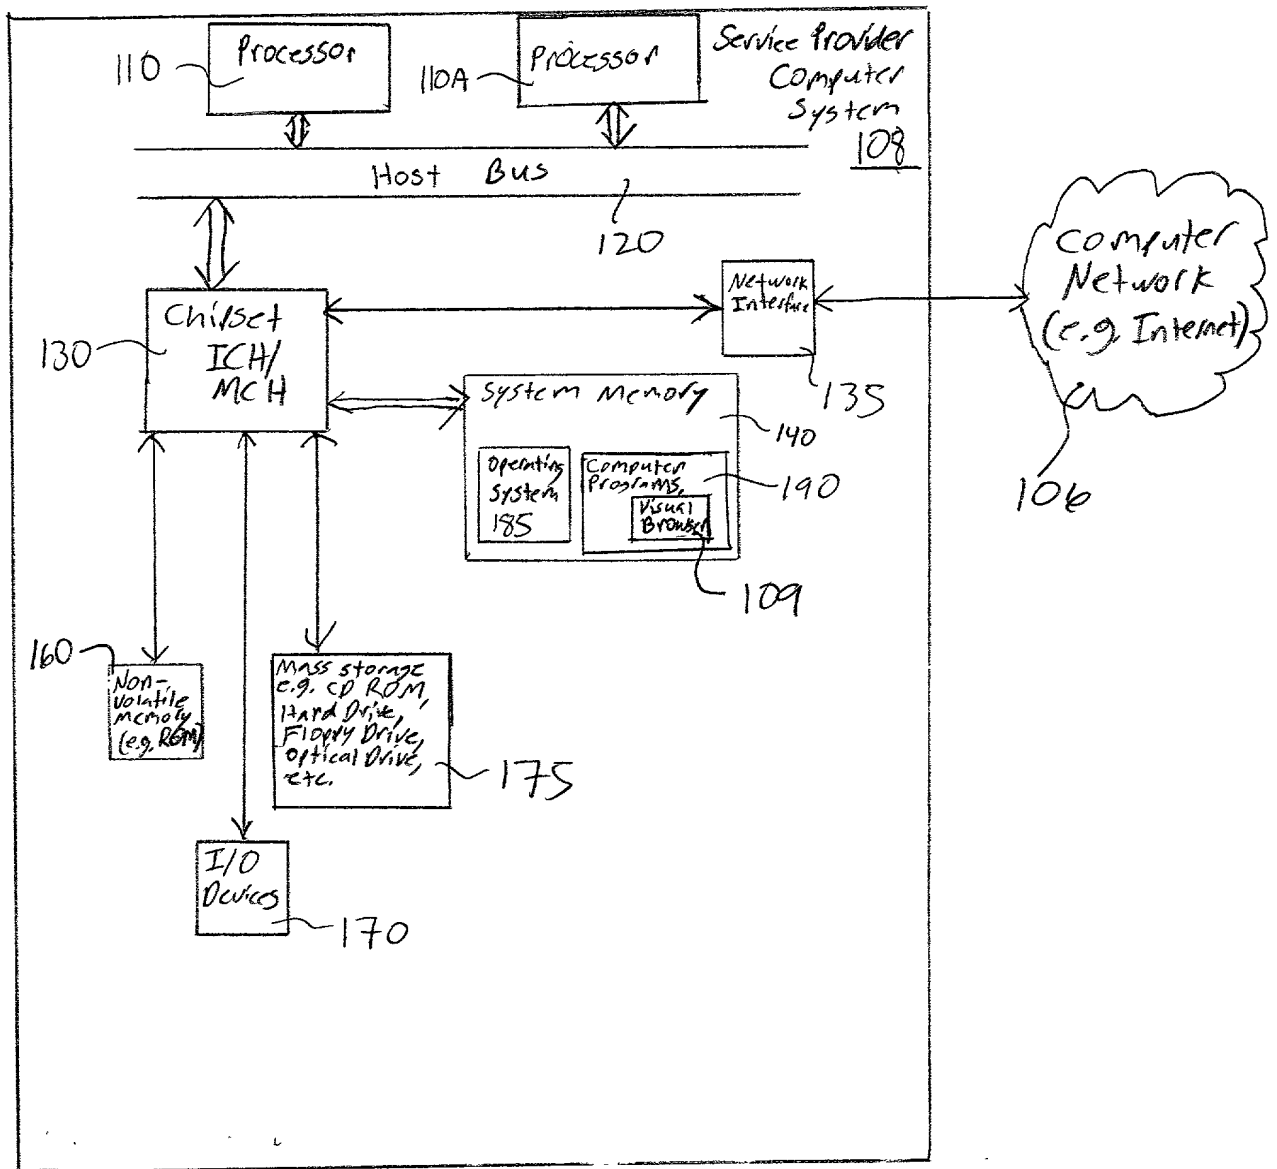 Processor
110
Processor
110A
Service Provider
Computer
System
108
Host Bus
120
Computer
Network
(e.g. Internet)
106
Network
Interface
135
Chipset
ICH/
MCH
130
System Memory
140
Operating
System
185
Computer
Programs
190
Visual
Browser
109
160
Non-
volatile
Memory
(e.g. ROM)
Mass storage
e.g. CD ROM,
Hard Drive,
Floppy Drive,
Optical Drive,
etc.
175
I/O
Devices
170